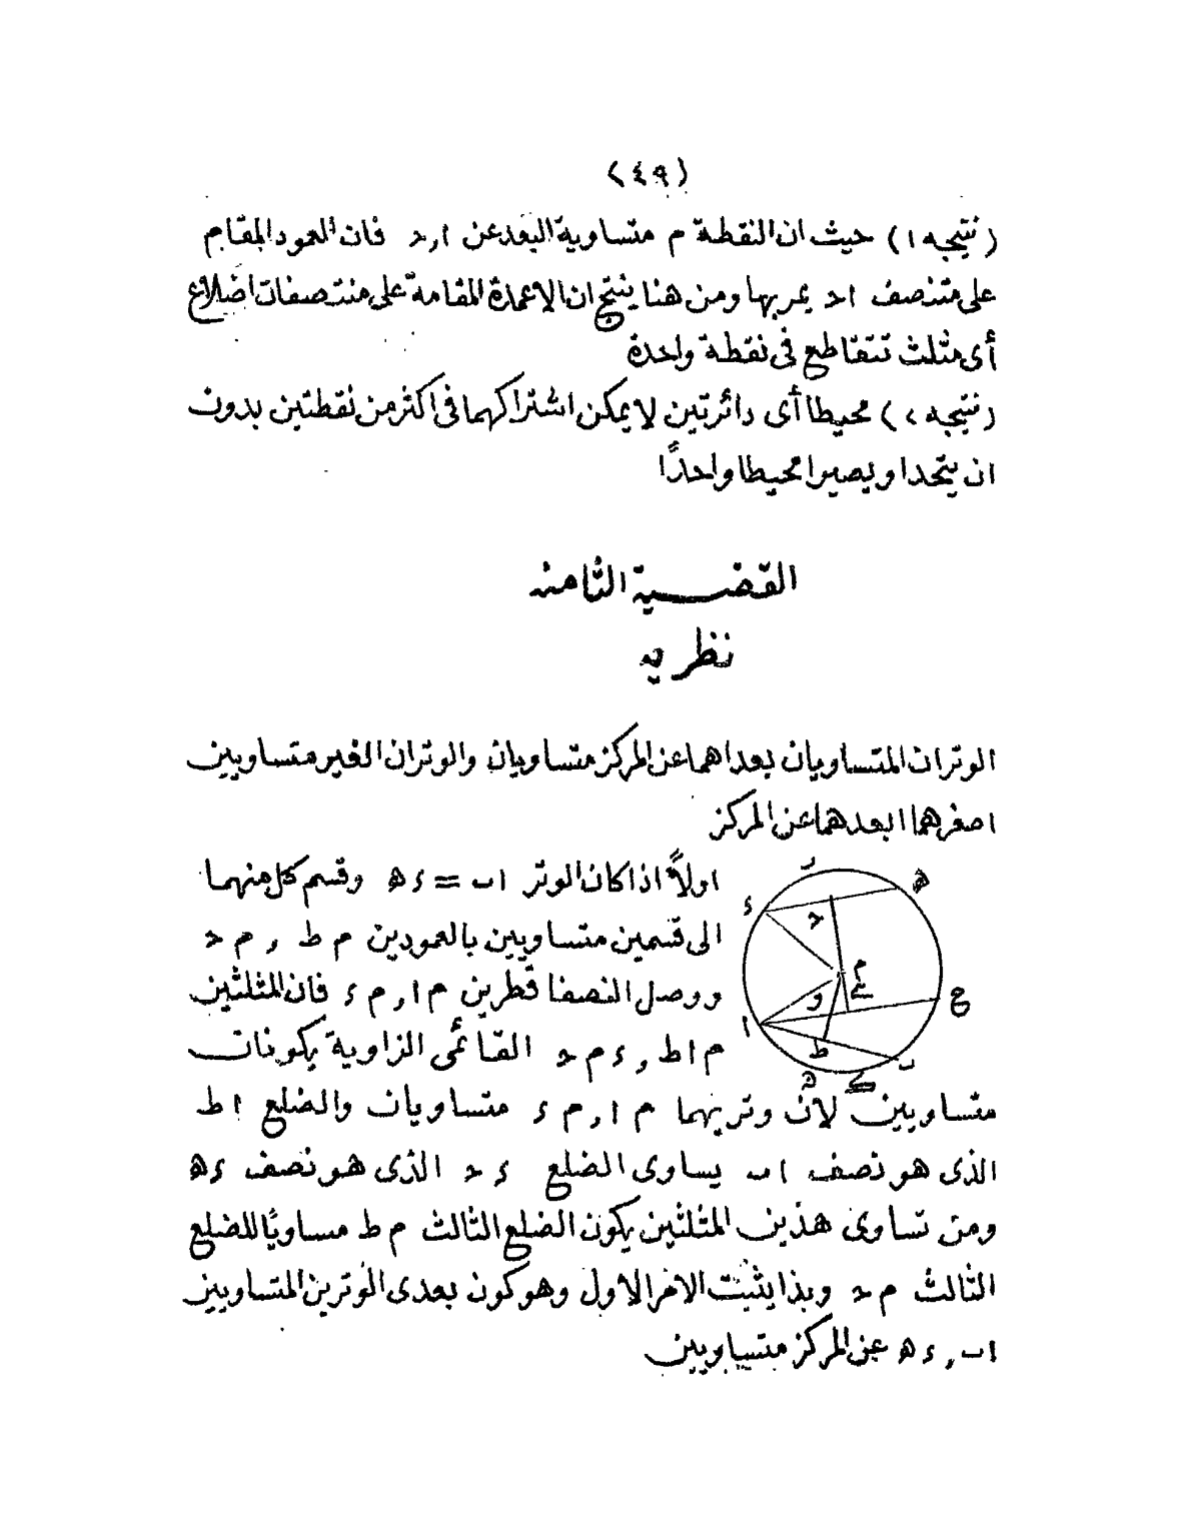 (٤٩)
(نتيجه ١) حيث ان النقطة م متساوية البعد عن ا , حـ فان العمود المقام
على منتصف ا حـ يمر بها ومن هنا ينتج ان الاعمدة المقامة على منتصفات اضلاع
أى مثلث تتقاطع فى نقطة واحدة
(نتيجه ٢) محيطا أى دائرتين لا يمكن اشتراكهما فى اكثر من نقطتين بدون
ان يتحدا ويصيرا محيطا واحدًا
القضية الثامنه
نظريه
الوتران المتساويان بعداهما عن المركز متساويان والوتران الغير متساويين
اصغرهما ابعدهما عن المركز
اولاً اذا كان الوتر ا ب = ء ه وقسم كل منهما
الى قسمين متساويين بالعمودين م ط , م حـ
ووصل النصفا قطرين م ا , م ء فان المثلثين
م ا ط , ء م حـ القائمى الزاوية يكونان
متساويين لان وتريهما م ا , م ء متساويان والضلع ا ط
الذى هو نصف ا ب يساوى الضلع ء حـ الذى هو نصف ء ه
ومن تساوى هذين المثلثين يكون الضلع الثالث م ط مساويًا للضلع
الثالث م حـ وبذا يثبت الامر الاول وهو كون بعدى الوترين المتساويين
ا ب , ء ه عن المركز متساويين
ه
ء
حـ
م
و
ح
ا
ط
ب
ه
ك